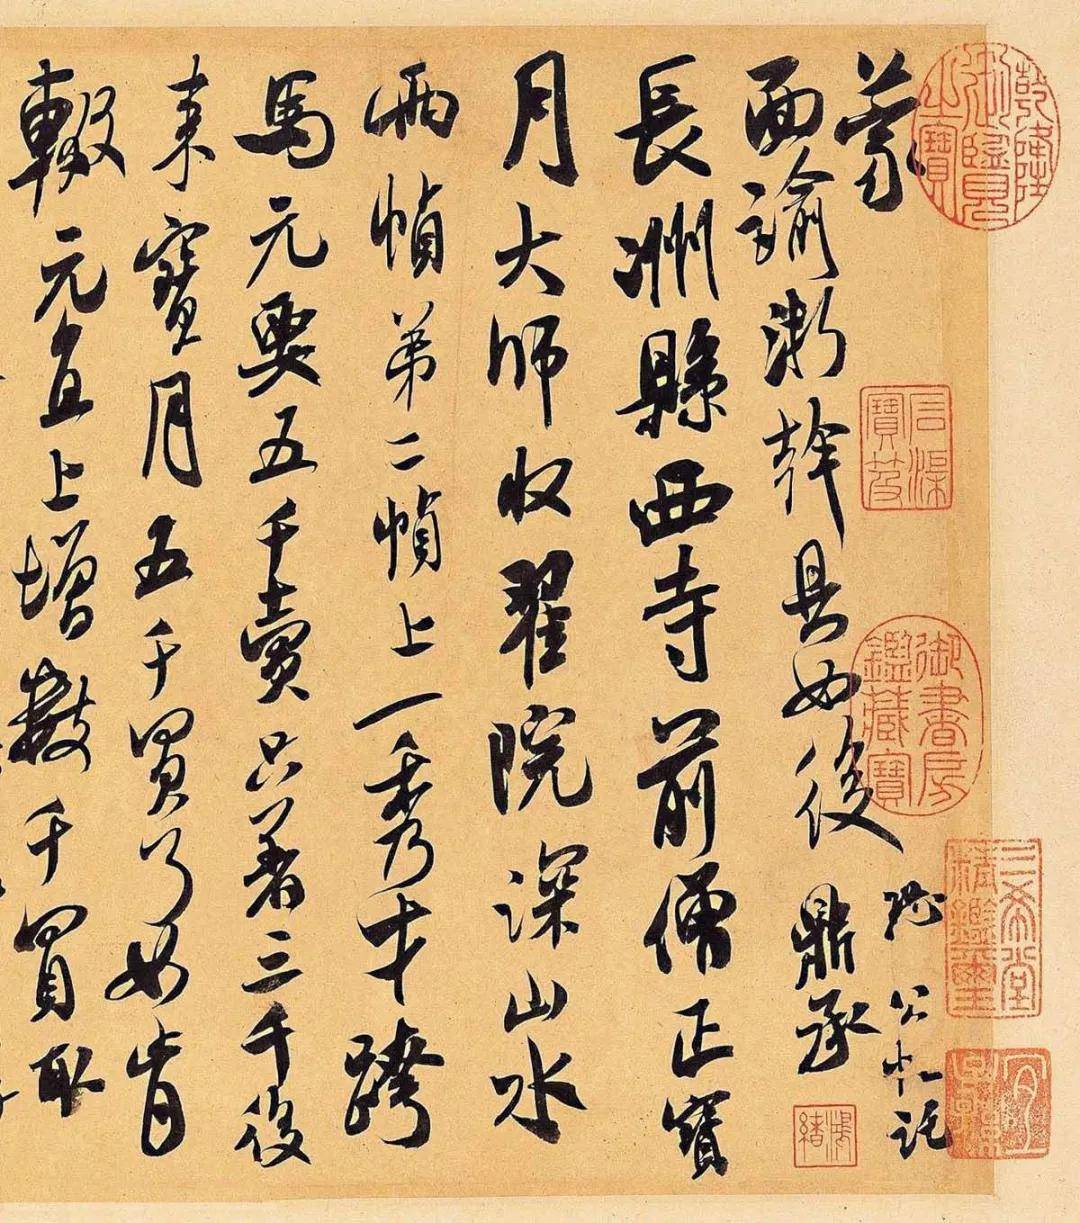 乾隆御覽之寶
石渠寶笈
御書房鑑藏寶
三希堂精鑑璽
宜子孫
蒙
面諭浙幹具如後 鼎承
長洲縣西寺前僧正寶
月大師收翟院深山水
兩幀弟二幀上一秀才跨
馬元要五千賣只著三千後
來寶月五千買了如肯
輟元直上增數千買取